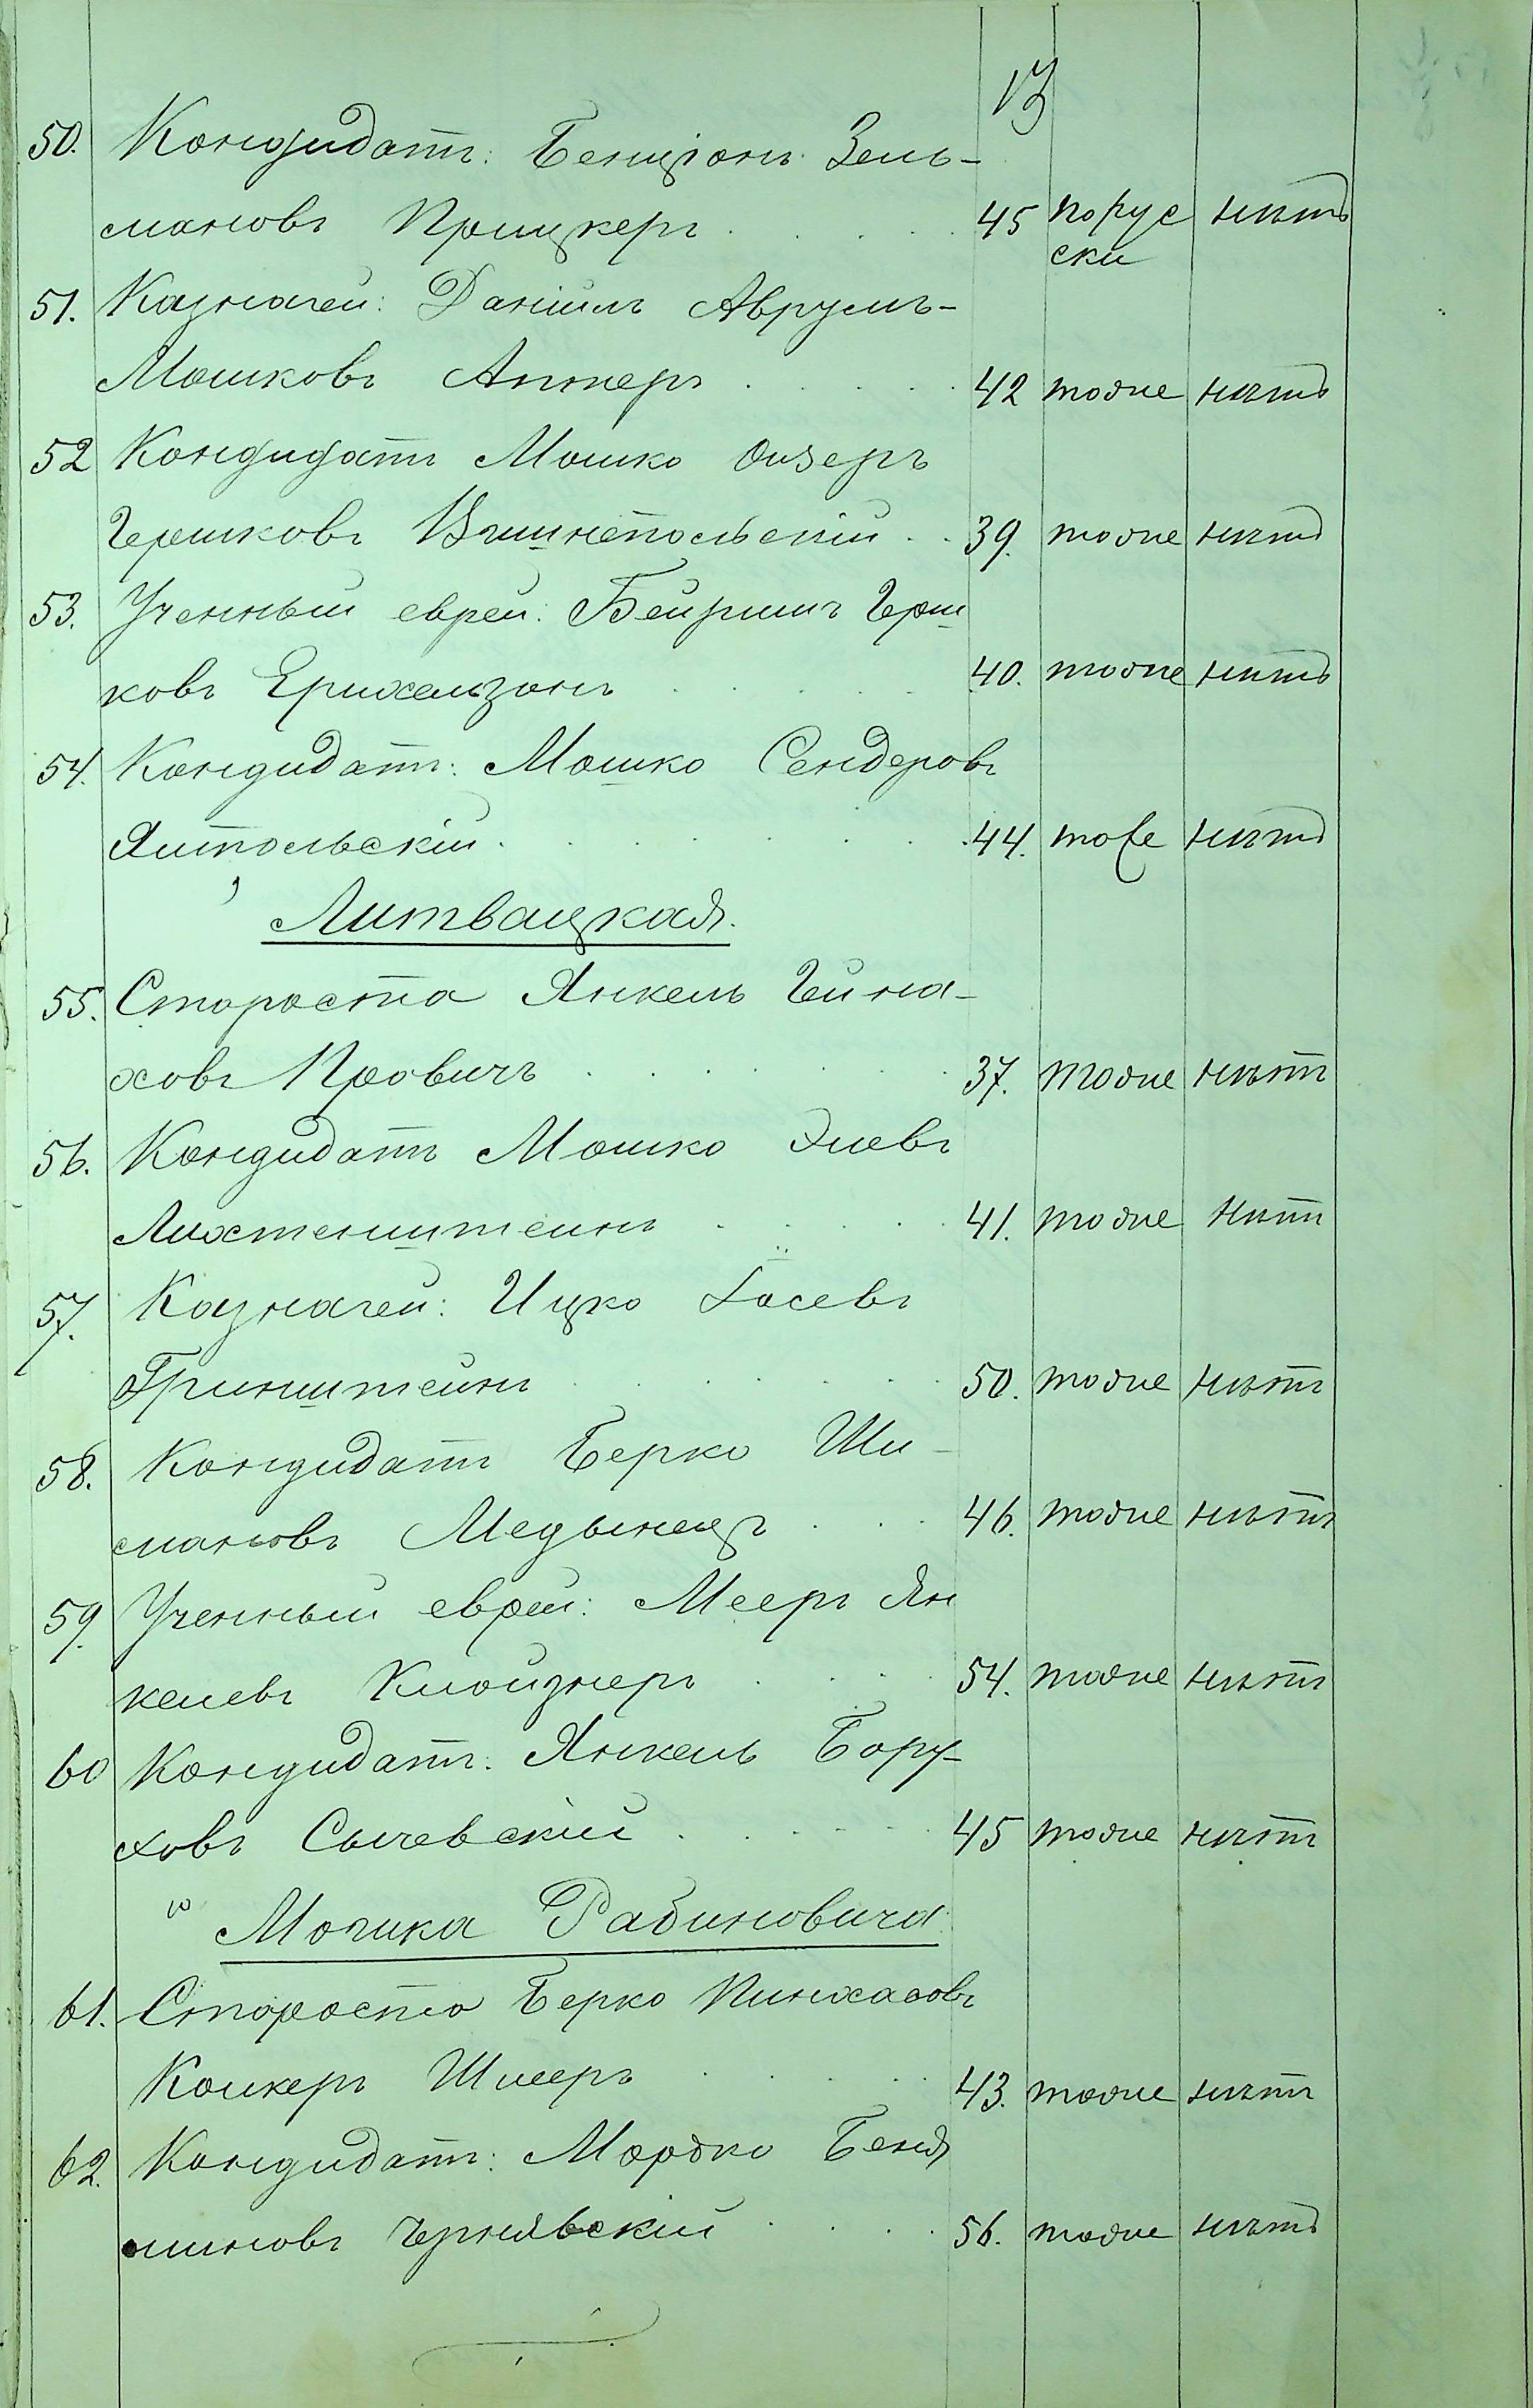 13
50. Кандидатъ: Бенціонъ Зель-
мановъ Прицкеръ 45 порус нѣтъ
ски
51. Казначей: Даніилъ Аврумъ-
Мошковъ Аптеръ 42 тоже нѣтъ
52 Кандидатъ Мошко Оизеръ
Гершковъ Вишнепольскій 39. тоже нѣтъ
53. Ученный еврей: Бейришъ Герш
ковъ Ерихельзонъ 40. тоже нѣтъ
54. Кандидатъ: Мошко Сендеровъ
Ямпольскій 44. тоже нѣтъ
Литвацкая.
55. Староста Янкель Гейна-
ховъ Кровичъ 37. тоже нѣтъ
56. Кандидатъ Мошко Элевъ
Лихтенштейнъ 41. тоже нѣтъ
57. Казначей: Ицко Іосевъ
Гринштейнъ 50. тоже нѣтъ
58. Кандидатъ Берко Ши-
мановъ Медвинецъ 46. тоже нѣтъ
59. Ученный еврей: Мееръ Ян
келевъ Клойзнеръ 54. тоже нѣтъ
60 Кандидатъ: Янкель Бору-
ховъ Сычевскій 45 тоже нѣтъ
Мошка Рабиновича
61. Староста Берко Пинхасовъ
Колкеръ Шмееръ 43. тоже нѣтъ
62. Кандидатъ: Мордко Беня
миновъ Чернявскій 56. тоже нѣтъ